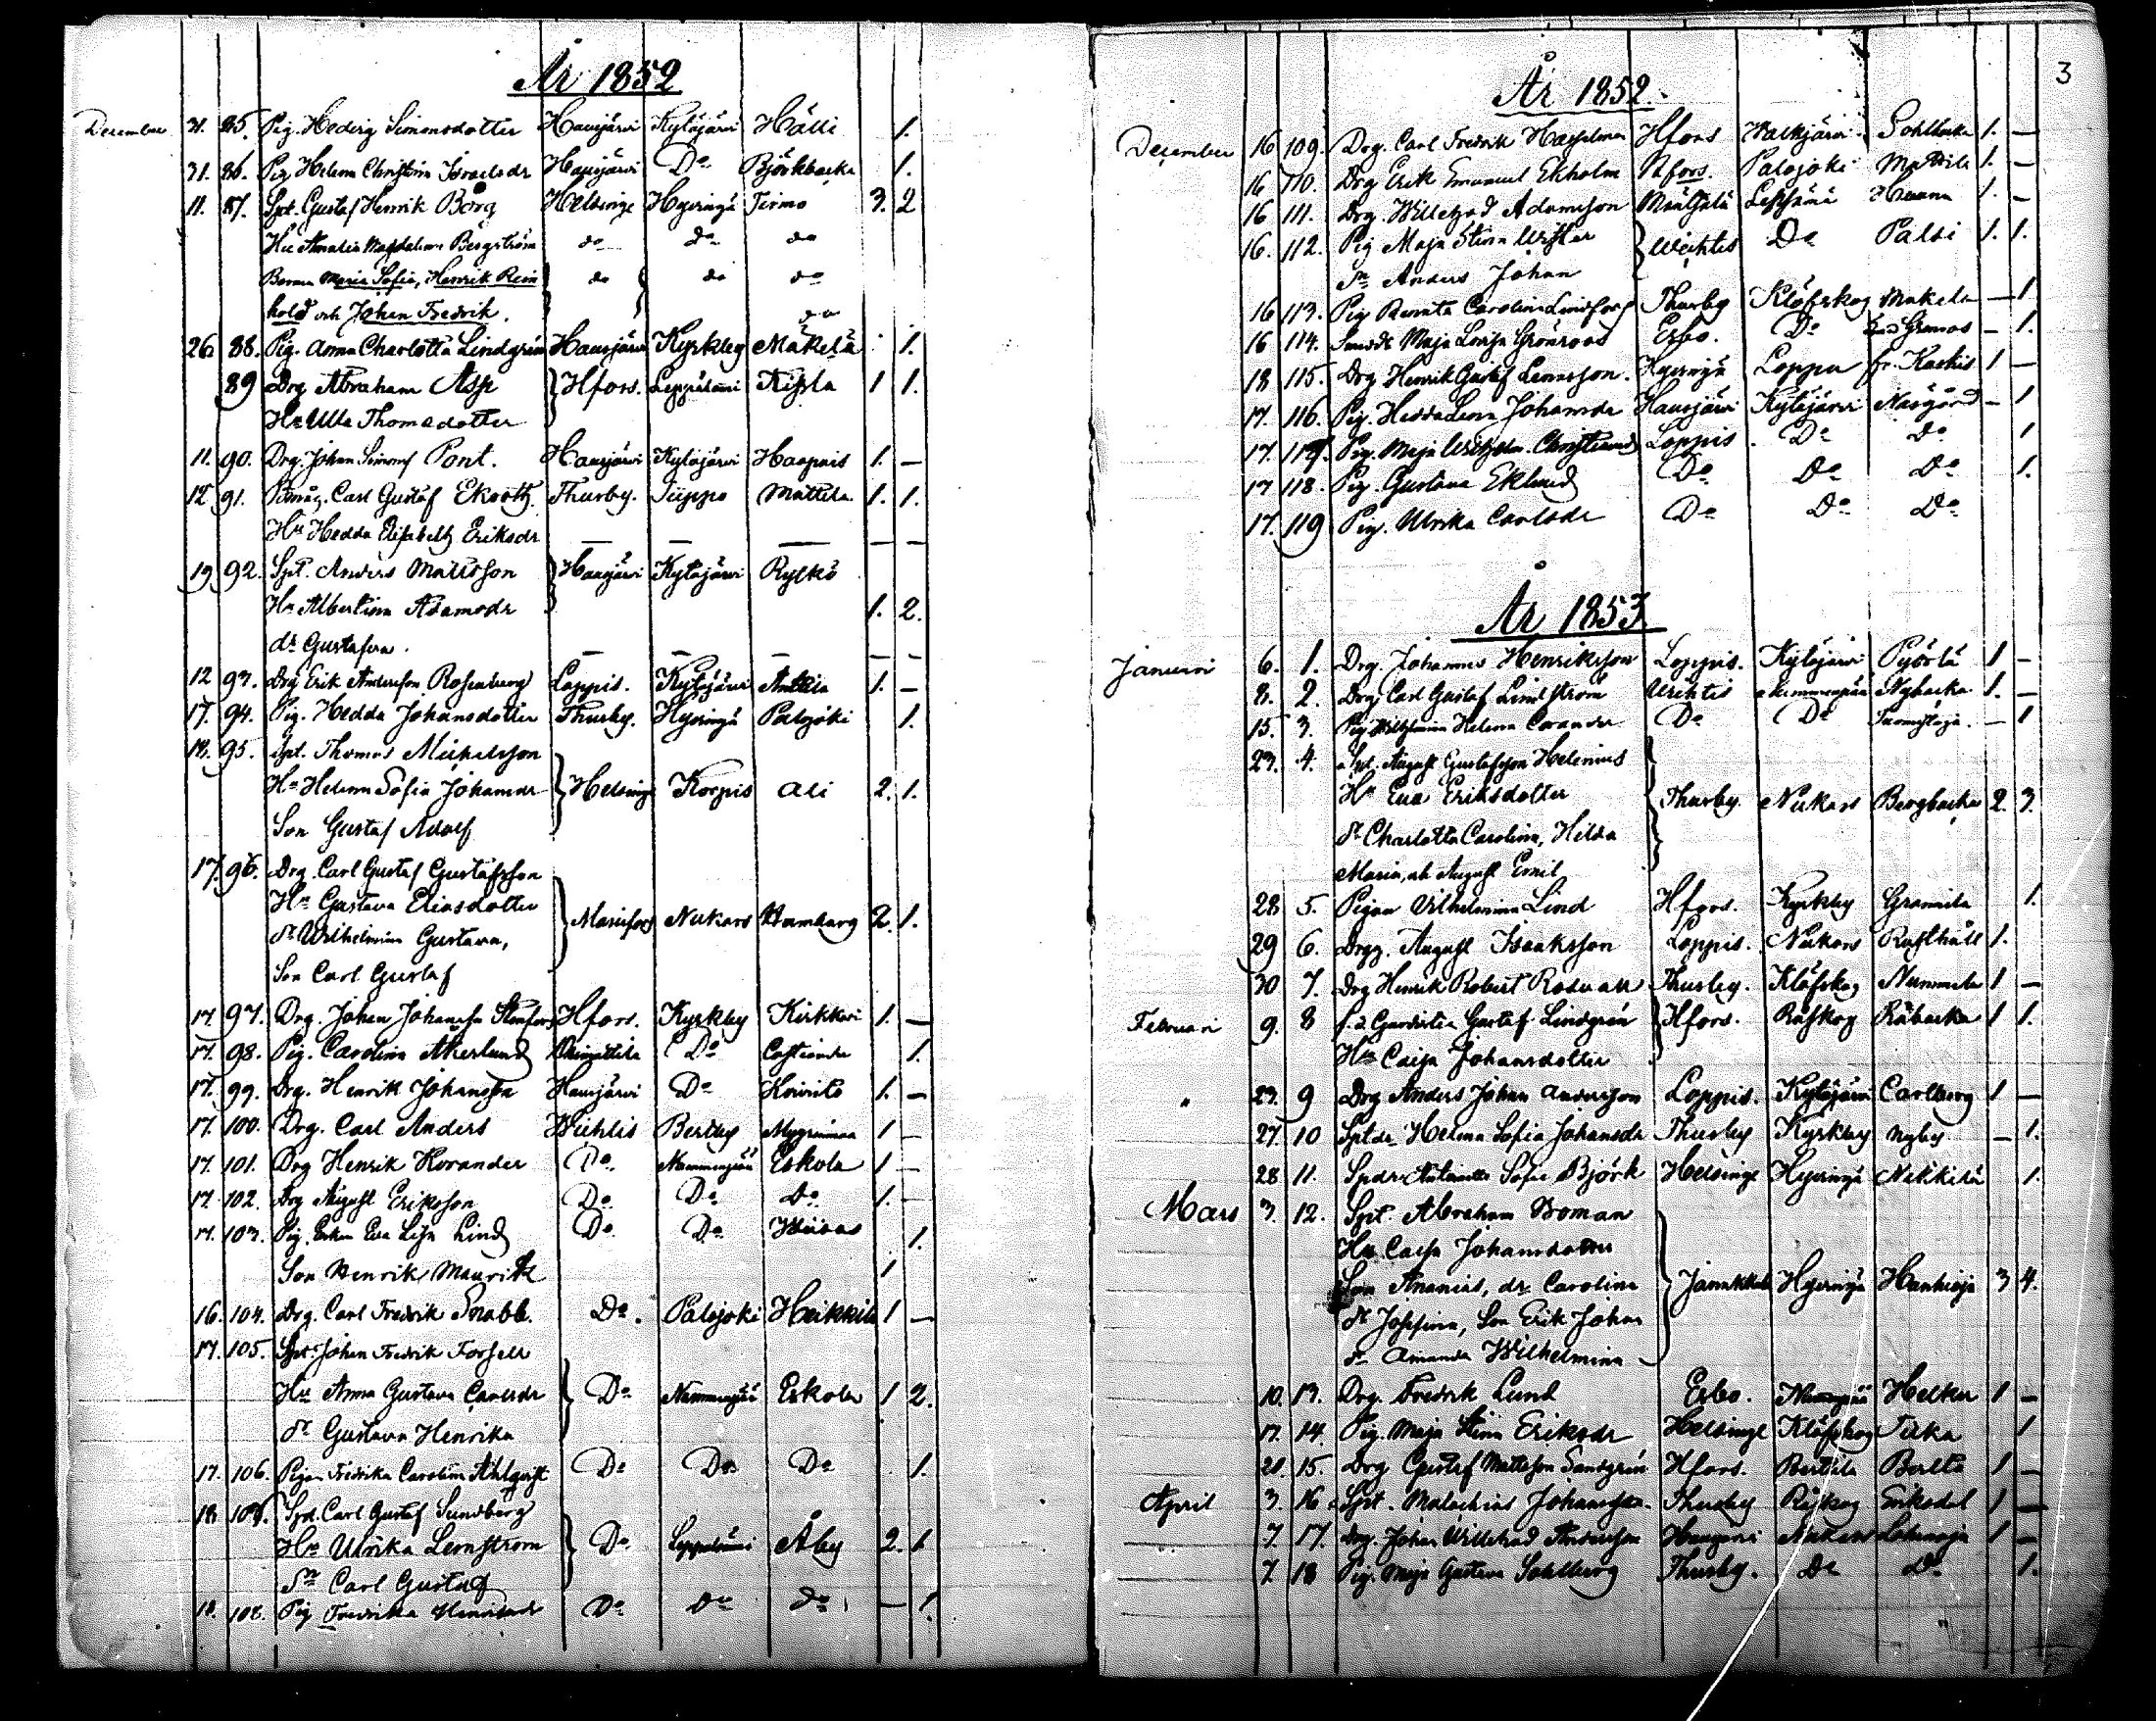 År 1852
December 31. 85. Pig. Hedvig Simonsdotter Hausjärvi Kytäjärvi Hälli 1.
31. 86. Pig Helena Christina Israelsdr Hausjärvi Do Björkbacka 1.
11. 87. Spt. Gustaf Henrik Borg Helsinge Hyvingä Termo 3. 2
Hu Amalia Magdalena Bergström do do do
Barnen Maria Sofia, Henrik Rein do do do
hold och Johan Fredrik. do
26 88. Pig. Anna Charlotta Lindgrén Hausjärvi Kyrkby Mäkelä 1.
89 Drg Abraham Asp Hfors. Leppälämi 1 1.
Hu Ulla Thomasdotter
11. 90. Drg. Johan Simons Pont. Hausjärvi Kytäjärvi Haapnis 1. —
12 91. Carl Gustaf Ekroth Thusby. Jüppo Mattila 1. 1.
Hu Hedda Elisabeth Eriksdr — — — — —
19 92. Spt. Anders Mattsson Hausjärvi Kytäjärvi Rylkö
Hu Albertina Adamsdr 1. 2.
dr Gustafva. — — — — —
12 93. Drg Erik Andersson Rosenberg Loppis. Kytäjärvi Anttila 1. —
17. 94. Pig. Hedda Johansdotter Thusby. Hyvingä Palojoki 1.
18. 95. Spt. Thomas Michelsson
Hu Helena Sofia Johansdr Helsinge Korpis Ali 2. 1.
Son Gustaf Adolf
17. 96. Drg. Carl Gustaf Gustafsson
Hu Gustava Eliasdotter Mariefors Nukars Hramberg 2. 1.
dr Wilhelmina Gustava,
Son Carl Gustaf
17. 97. Drg. Johan Johansson Hfors. Kyrkby Kirkkari 1. —
17. 98. Pig. Carolina Åkerlund Do 1.
17. 99. Drg. Henrik Johansson Hausjärvi Do Koivisto 1. —
17. 100. Drg. Carl Anders Wichtis Bertby 1 —
17. 101. Drg Henrik Korander Do Nummenpää Eskola 1 —
17. 102. Drg August Eriksson Do Do Do 1. —
17. 103. Pig. Enkan Eva Lisa Lind Do Do 1.
Son Henrik Maurits 1
16. 104. Drg. Carl Fredrik Snabb. Do. Palojoki Heikkilä 1 —
17. 105. Spt. Johan Fredrik Forsell
Hu Anna Gustava Carlsdr Do Nummenpää Eskola 1 2.
dr Gustava Henrika
17. 106. Pigan Fredrika Carolina Ahlqvist Do Do Do 1.
18. 107. Spt. Carl Gustaf Sundberg
Hu Ulrika Lernström Do Leppälämi Åby 2. 1
Sn Carl Gustaf
18. 108. Pig Fredrika Henriksdr Do Do Do — 1.
3
År 1852.
December 16 109. Drg. Carl Fredrik Hasselman Hfors Walkjärvi Sohlbacka 1. —
16 110. Drg Erik Emanuel Ekholm Hfors. Palojoki Mattila 1. —
16 111. Drg. Willehad Adamsson Mäntsälä Lepsämä 1. —
16. 112. Pig Maja Stina Wichtis Do Palsi 1. 1.
Sn Anders Johan
16 113. Pig Renata Carolina Lindfors Thusby Klöfskog Makela — 1
16 114. Maja Lovisa Grönroos Esbo. Do — 1.
18 115. Drg Henrik Gustaf Lennsson. Hyvingä Loppu fr. Kaskis 1 —
17. 116. Pig. Hedda Lena Johansdr Hausjärvi Kytäjärvi Näsgård — 1
17. 117. Pig. Maja Wilhelm. Loppis. Do Do 1
17 118. Pig. Gustava Eklund Do Do Do 1.
17. 119 Pig. Ulrika Carlsdr Do Do Do
År 1853
Januari 6. 1. Drg. Johannes Henriksson Loppis. Kytäjärvi Pyörlä 1 —
8. 2. Drg. Carl Gustaf Lindström Wichtis Nummenpää Nybacka 1. —
15. 3. Pig Wilhelmina Helena Corander Do Do — 1
23. 4. Spt. August Gustafsson Helenius
Hu Eva Eriksdotter Thusby Nukars Bergbacka 2. 3.
dr Charlotta Carolina, Hilda
Maria, och August Emil
28 5. Pigan Vilhelmina Lind Hfors. Kyrkby Grannila 1.
29 6. Drg. August Isaksson Loppis. Nukars 1.
30 7. Drg Henrik Robert Rosvall Thusby. Klöfskog Nummela 1 —
Februari 9. 8 f.d. Gardisten Gustaf Lindgrén Hfors. Råskog Råbacka 1 1.
Hu Caisa Johansdotter
" 23. 9 Drg Anders Johan Andersson Loppis. Kytäjärvi Carlberg 1 —
27. 10 Sptdr Helena Sofia Johansdr Thusby Kyrkby Nyby — 1.
28 11. Spdr. Sofia Björk Helsinge Hyvingä Nikkilä 1.
Mars 3. 12. Spt. Abraham Boman
Hu Caisa Johansdotter
Son Ananias, dr Carolina Hyvingä Hankioja 3 4.
dr Josefina, Son Erik Johan
dr Amanda Wilhelmina
10. 13. Drg. Fredrik Lund Esbo. Helku 1 —
17. 14. Pig. Maja Stina Eriksdr Helsinge Klöfskog 1
21. 15. Drg Gustaf Mattsson Sandgrén Hfors. 1 —
April 3. 16. Spt. Malachias Johansson. Thusby Råskog Eriksdal 1 —
7. 17. Drg. Johan Willehad Andersson Hausjärvi Nukars 1 —
7. 18 Pig. Maja Gustava Sohlberg Thusby. Do Do 1.